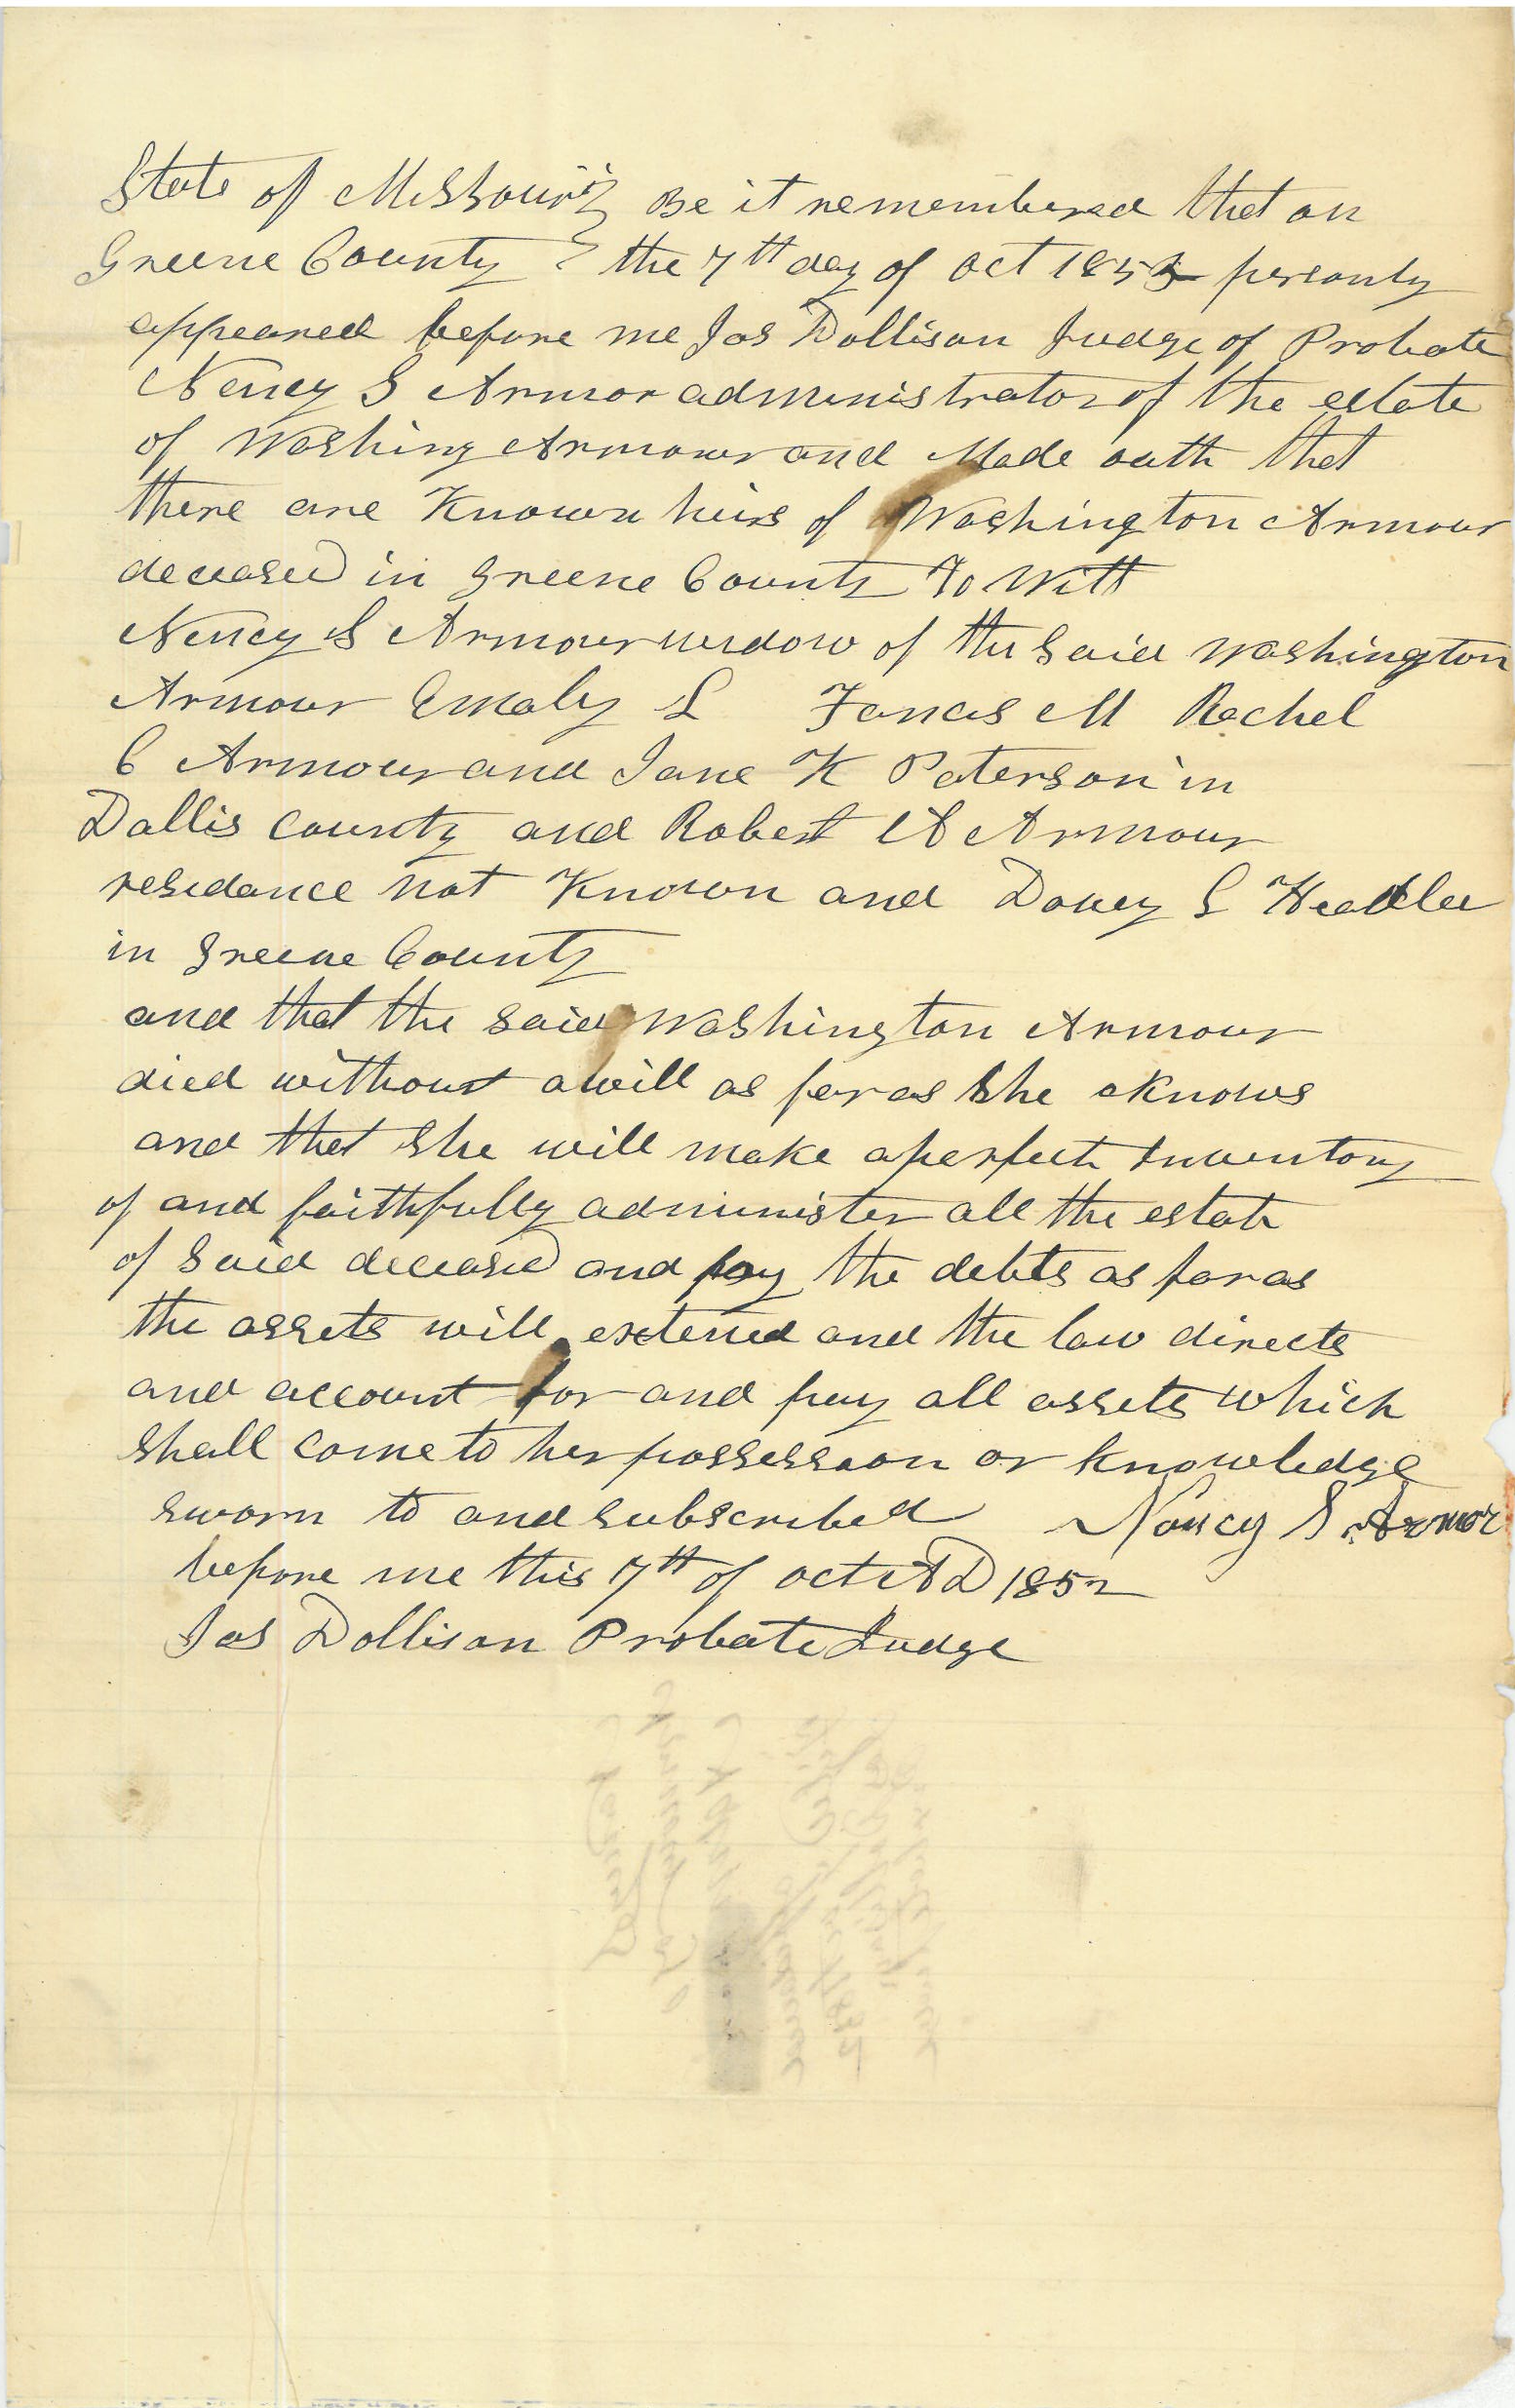 State of Missouri } Be it remembered that on
Greene County } the 7th day of Oct 1852 personly
appeared before me Jas Dollison Judge of Probate
Nancy S Armor administrator of the estate
of Washing Armour and Made oath that
there are Known heirs of Washington Armour
deceased in Greene County To Witt
Nancy S Armour widow of the Said Washington
Armour Emaly L Francis M Rachel
C Armour and Jane K Peterson in
Dallis County and Robert A Armour
residance not Known and Dovey S Headlee
in Greene County
and that the said Washington Armour
died without a will as far as she knows
and that She will make a perfect Inventory
of and faithfully administer all the estate
of Said deceased and pay the debts as far as
the assets will extend and the law directs
and account for and pay all assets which
shall come to her possession or knowledge
sworn to and subscribed Nancy S Armor
before me this 7th of Oct AD 1852
Jas Dollison Probate Judge